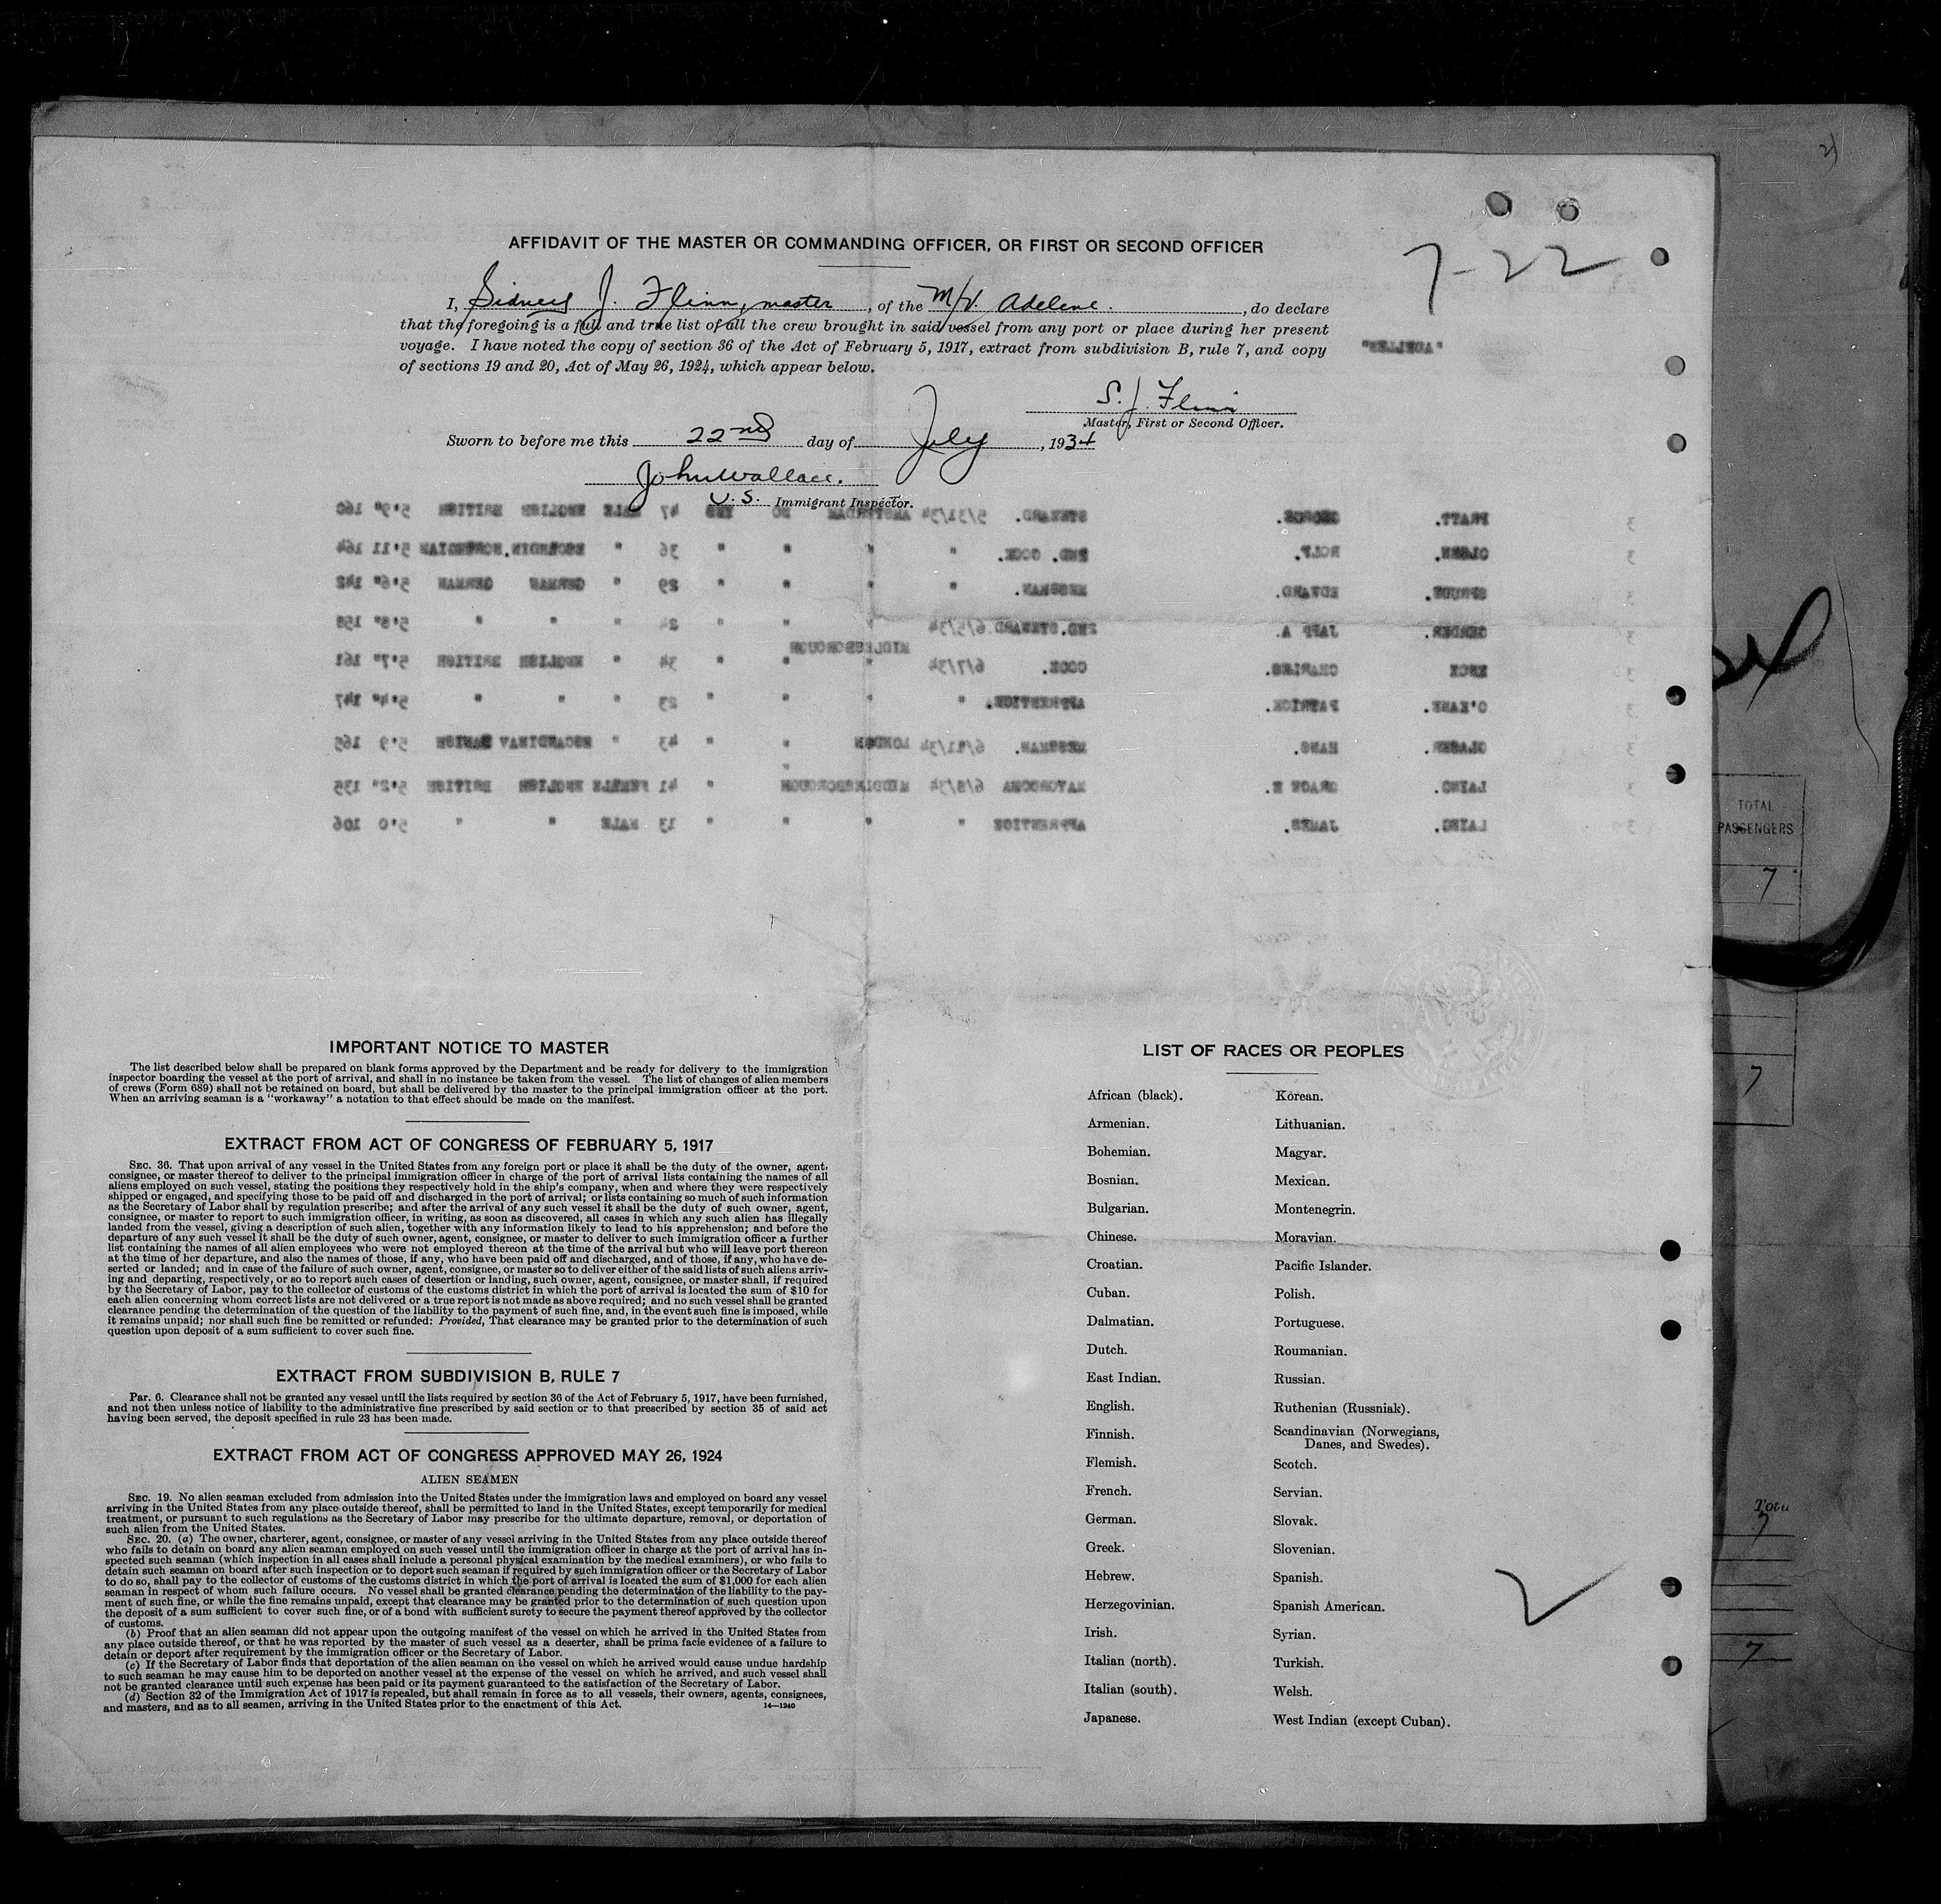 AFFIDAVIT OF THE MASTER OR COMMANDING OFFICER, OR FIRST OR SECOND OFFICER
7-22
I, Sidney J. Flinn, master, of the M/V. Adelene., do declare
that the foregoing is a full and true list of all the crew brought in said vessel from any port or place during her present
voyage. I have noted the copy of section 36 of the Act of February 5, 1917, extract from subdivision B, rule 7, and copy
of sections 19 and 20, Act of May 26, 1924, which appear below.
S. J. Flinn
Master, First or Second Officer.
Sworn to before me this 22nd day of July, 1934
John Wallace.
U.S. Immigrant Inspector.
3 PRATT. GEORGE. STEWARD. 5/31/34 AMSTERDAM NO YES 47 MALE ENGLISH BRITISH 5'9" 160
3 OLSEN. ROLF. 2ND. COOK. " " " " 36 " SCANDIN. NORWEGIAN 5'11 164
3 EDWARD. MESSMAN. " " " " 29 " GERMAN GERMAN 5'6" 142
3 A. 2ND.STEWARD. 6/5/34 " " " 24 " " " 5'8" 158
MIDLESBOROUGH
3 CHARLES. COOK. 6/7/34 " " 34 " ENGLISH BRITISH 5'7" 161
3 O'KANE. PATRICK. APPRENTICE. " " " " 23 " " " 5'4" 147
3 HANS. MESSMAN. 6/11/34 LONDON " " 43 " SCANDINAV DANISH 5'9 165
3 LAING. GRACE E. 6/8/34 MIDDLESBOROUGH " " 41 FEMALE ENGLISH BRITISH 5'2" 135
3 LAING. JAMES. APPRENTICE " " " " 13 MALE " " 5'0 106
IMPORTANT NOTICE TO MASTER
The list described below shall be prepared on blank forms approved by the Department and be ready for delivery to the immigration
inspector boarding the vessel at the port of arrival, and shall in no instance be taken from the vessel. The list of changes of alien members
of crews (Form 689) shall not be retained on board, but shall be delivered by the master to the principal immigration officer at the port.
When an arriving seaman is a "workaway" a notation to that effect should be made on the manifest.
EXTRACT FROM ACT OF CONGRESS OF FEBRUARY 5, 1917
SEC. 36. That upon arrival of any vessel in the United States from any foreign port or place it shall be the duty of the owner, agent,
consignee, or master thereof to deliver to the principal immigration officer in charge of the port of arrival lists containing the names of all
aliens employed on such vessel, stating the positions they respectively hold in the ship's company, when and where they were respectively
shipped or engaged, and specifying those to be paid off and discharged in the port of arrival; or lists containing so much of such information
as the Secretary of Labor shall by regulation prescribe; and after the arrival of any such vessel it shall be the duty of such owner, agent,
consignee, or master to report to such immigration officer, in writing, as soon as discovered, all cases in which any such alien has illegally
landed from the vessel, giving a description of such alien, together with any information likely to lead to his apprehension; and before the
departure of any such vessel it shall be the duty of such owner, agent, consignee, or master to deliver to such immigration officer a further
list containing the names of all alien employees who were not employed thereon at the time of the arrival but who will leave port thereon
at the time of her departure, and also the names of those, if any, who have been paid off and discharged, and of those, if any, who have de-
serted or landed; and in case of the failure of such owner, agent, consignee, or master so to deliver either of the said lists of such aliens arriv-
ing and departing, respectively, or so to report such cases of desertion or landing, such owner, agent, consignee, or master shall, if required
by the Secretary of Labor, pay to the collector of customs of the customs district in which the port of arrival is located the sum of $10 for
each alien concerning whom correct lists are not delivered or a true report is not made as above required; and no such vessel shall be granted
clearance pending the determination of the question of the liability to the payment of such fine, and, in the event such fine is imposed, while
it remains unpaid; nor shall such fine be remitted or refunded: Provided, That clearance may be granted prior to the determination of such
question upon deposit of a sum sufficient to cover such fine.
EXTRACT FROM SUBDIVISION B, RULE 7
Par. 6. Clearance shall not be granted any vessel until the lists required by section 36 of the Act of February 5, 1917, have been furnished,
and not then unless notice of liability to the administrative fine prescribed by said section or to that prescribed by section 35 of said act
having been served, the deposit specified in rule 23 has been made.
EXTRACT FROM ACT OF CONGRESS APPROVED MAY 26, 1924
ALIEN SEAMEN
SEC. 19. No alien seaman excluded from admission into the United States under the immigration laws and employed on board any vessel
arriving in the United States from any place outside thereof, shall be permitted to land in the United States, except temporarily for medical
treatment, or pursuant to such regulations as the Secretary of Labor may prescribe for the ultimate departure, removal, or deportation of
such alien from the United States.
SEC. 20. (a) The owner, charterer, agent, consignee, or master of any vessel arriving in the United States from any place outside thereof
who fails to detain on board any alien seaman employed on such vessel until the immigration officer in charge at the port of arrival has in-
spected such seaman (which inspection in all cases shall include a personal physical examination by the medical examiners), or who fails to
detain such seaman on board after such inspection or to deport such seaman if required by such immigration officer or the Secretary of Labor
to do so, shall pay to the collector of customs of the customs district in which the port of arrival is located the sum of $1,000 for each alien
seaman in respect of whom such failure occurs. No vessel shall be granted clearance pending the determination of the liability to the pay-
ment of such fine, or while the fine remains unpaid, except that clearance may be granted prior to the determination of such question upon
the deposit of a sum sufficient to cover such fine, or of a bond with sufficient surety to secure the payment thereof approved by the collector
of customs.
(b) Proof that an alien seaman did not appear upon the outgoing manifest of the vessel on which he arrived in the United States from
any place outside thereof, or that he was reported by the master of such vessel as a deserter, shall be prima facie evidence of a failure to
detain or deport after requirement by the immigration officer or the Secretary of Labor.
(c) If the Secretary of Labor finds that deportation of the alien seaman on the vessel on which he arrived would cause undue hardship
to such seaman he may cause him to be deported on another vessel at the expense of the vessel on which he arrived, and such vessel shall
not be granted clearance until such expense has been paid or its payment guaranteed to the satisfaction of the Secretary of Labor.
(d) Section 32 of the Immigration Act of 1917 is repealed, but shall remain in force as to all vessels, their owners, agents, consignees,
and masters, and as to all seamen, arriving in the United States prior to the enactment of this Act.
14—1240
LIST OF RACES OR PEOPLES
African (black). Korean.
Armenian. Lithuanian.
Bohemian. Magyar.
Bosnian. Mexican.
Bulgarian. Montenegrin.
Chinese. Moravian.
Croatian. Pacific Islander.
Cuban. Polish.
Dalmatian. Portuguese.
Dutch. Roumanian.
East Indian. Russian.
English. Ruthenian (Russniak).
Finnish. Scandinavian (Norwegians,
Danes, and Swedes).
Flemish. Scotch.
French. Servian.
German. Slovak.
Greek. Slovenian.
Hebrew. Spanish.
Herzegovinian. Spanish American.
Irish. Syrian.
Italian (north). Turkish.
Italian (south). Welsh.
Japanese. West Indian (except Cuban).
TOTAL
PASSENGERS
7
7
7
7